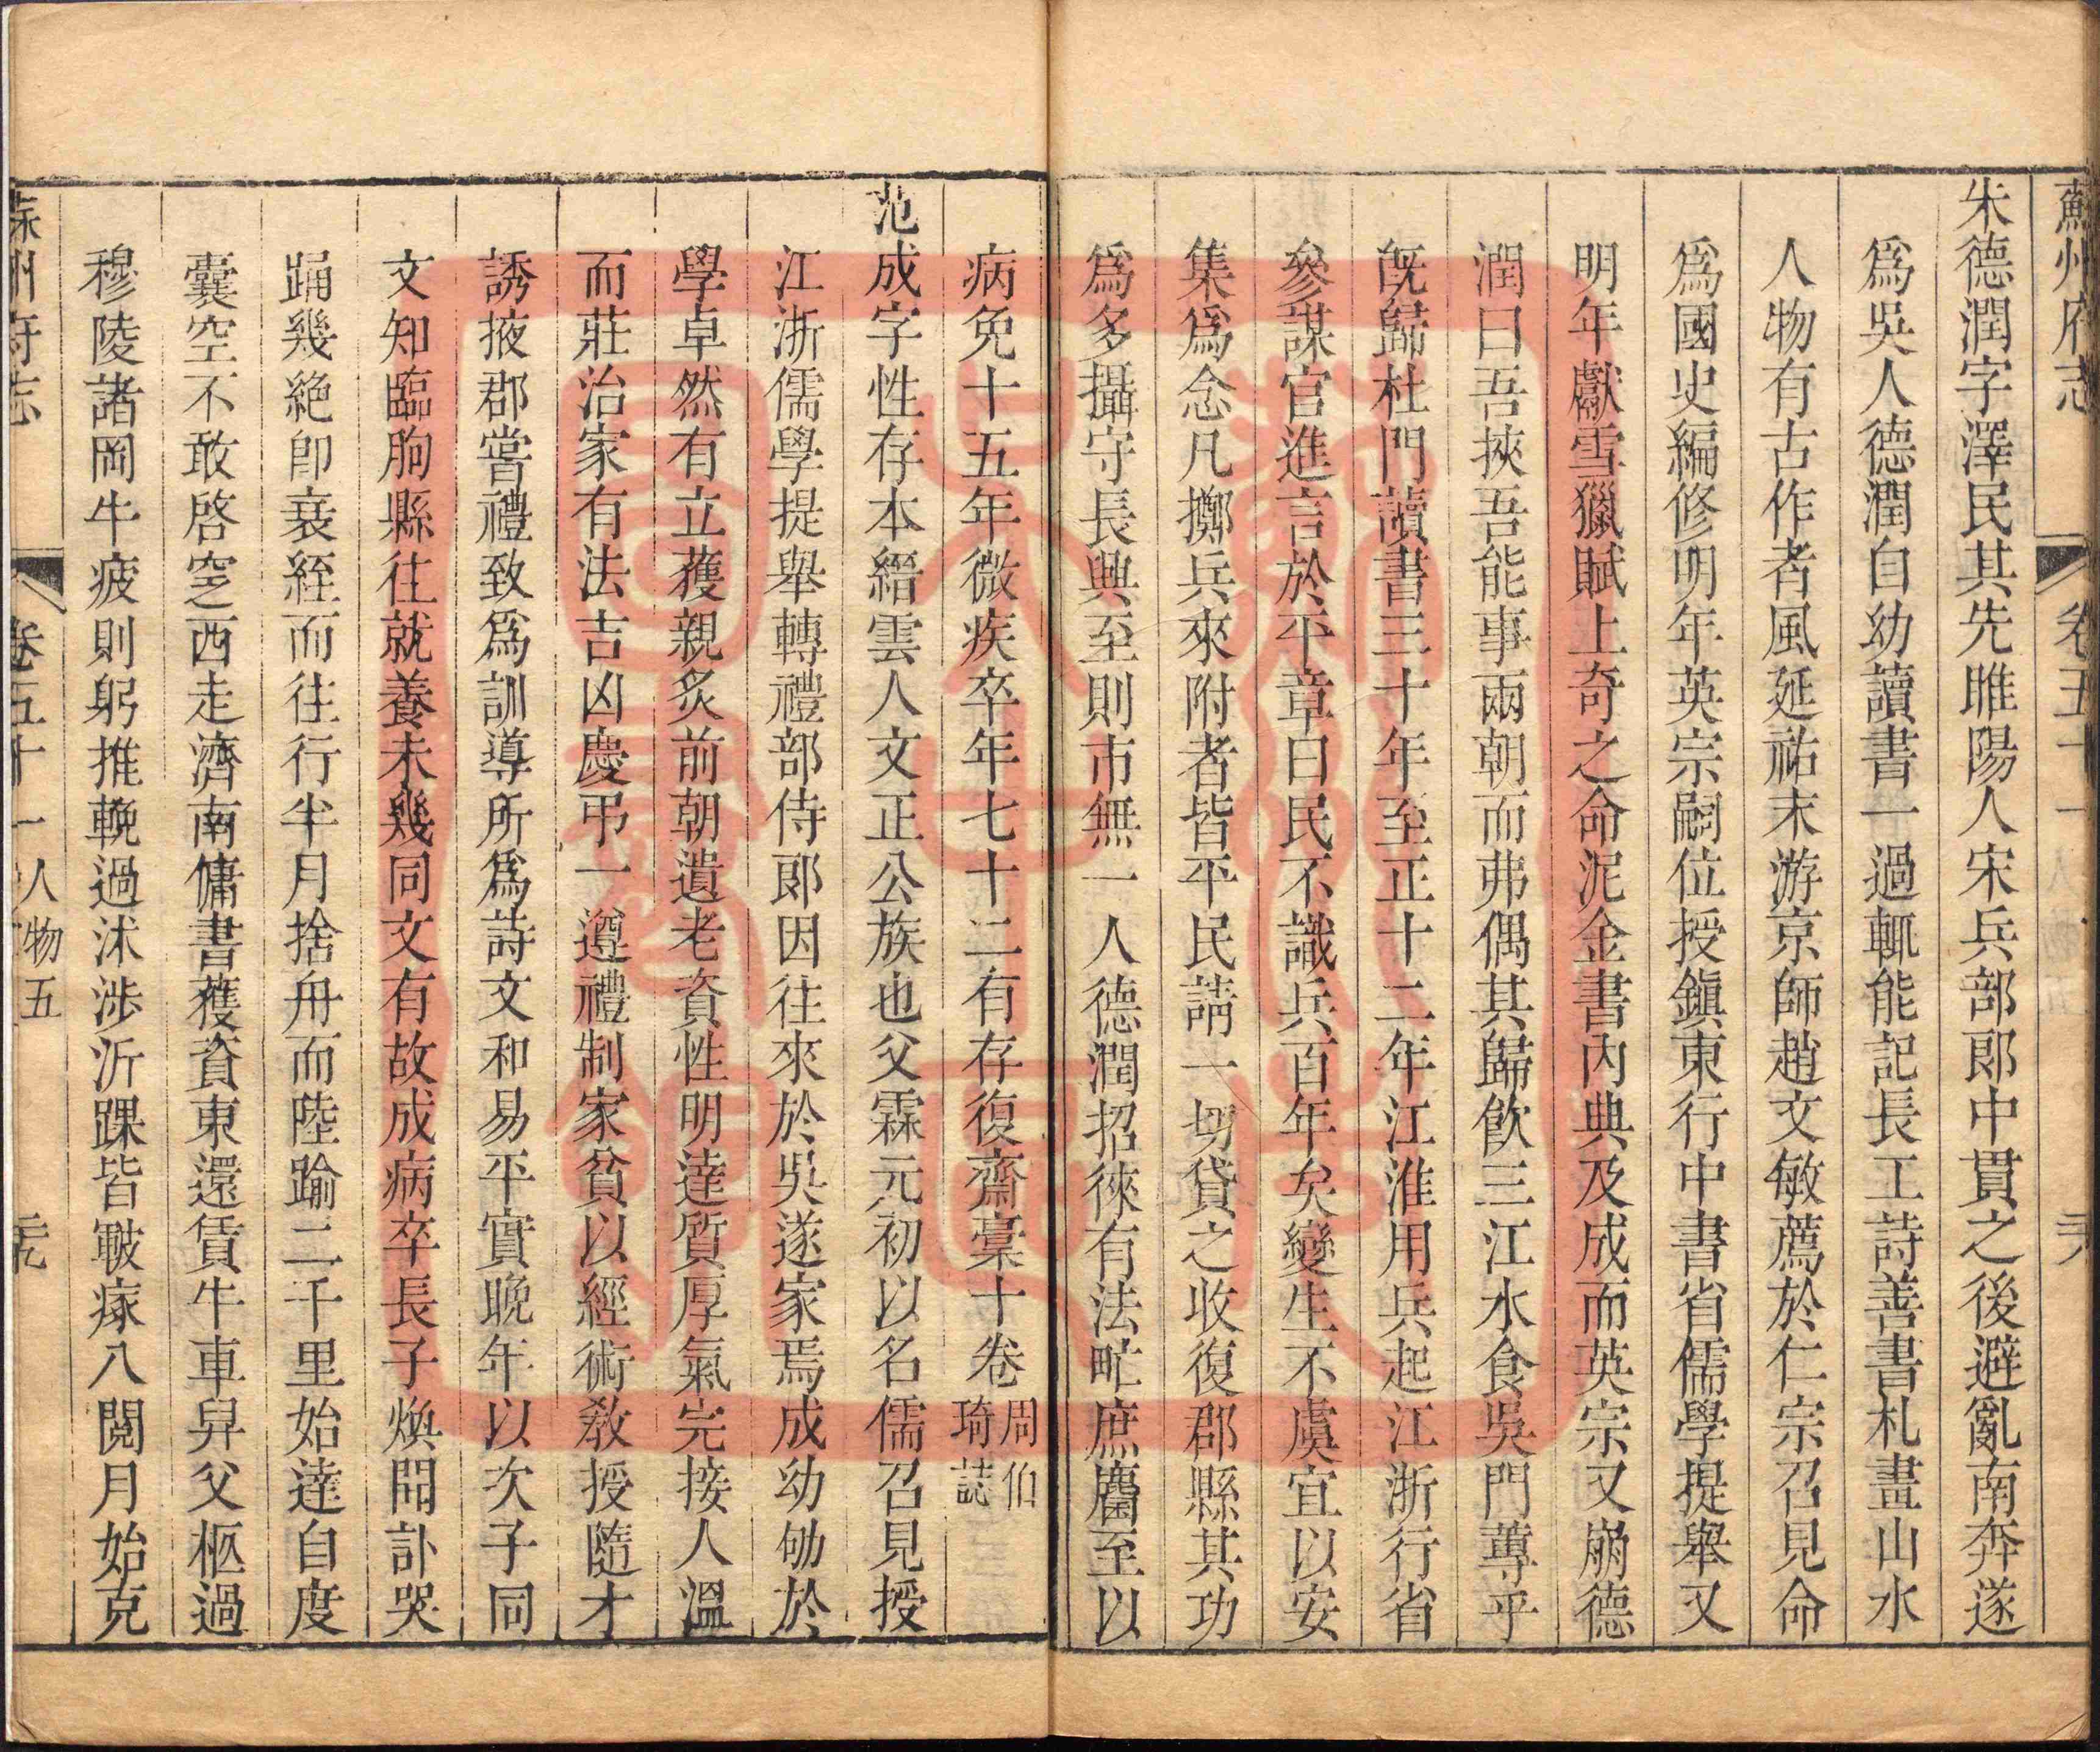 蘇州府志 卷五十一 人物五 天
朱德潤字澤民其先睢陽人宋兵部郎中貫之後避亂南奔遂
為吳人德潤自幼讀書一過輒能記長工詩善書札畫山水
人物有古作者風延祐末游京師趙文敏薦於仁宗召見命
為國史編修明年英宗嗣位授鎮東行中書省儒學提舉又
明年獻雪獵賦上奇之命泥金書內典及成而英宗又崩德
潤曰吾挾吾能事兩朝而弗偶其歸飲三江水食吳門蓴乎
既歸杜門讀書三十年至正十二年江淮用兵起江浙行省
參謀官進言於平章曰民不識兵百年矣變生不虞宜以安
集為念凡擲兵來附者皆平民請一切貸之收復郡縣其功
為多攝守長興至則市無一人德潤招徠有法甿庶麕至以
病免十五年微疾卒年七十二有存復齋稾十卷周伯琦誌
范成字性存本縉雲人文正公族也父霖元初以名儒召見授
江浙儒學提舉轉禮部侍郎因往來於吳遂家焉成幼劬於
學卓然有立獲親炙前朝遺老資性明達質厚氣完接人溫
而莊治家有法吉凶慶弔一遵禮制家貧以經術教授隨才
誘掖郡嘗禮致為訓導所為詩文和易平實晚年以次子同
文知臨朐縣往就養未幾同文有故成病卒長子煥聞訃哭
踊幾絕卽衰絰而往行半月捨舟而陸踰二千里始達自度
囊空不敢啓窆西走濟南傭書獲資東還賃牛車舁父柩過
穆陵諸岡牛疲則躬推輓過沭涉沂踝皆皸瘃八閱月始克
蘇州府志 卷五十一 人物五 元